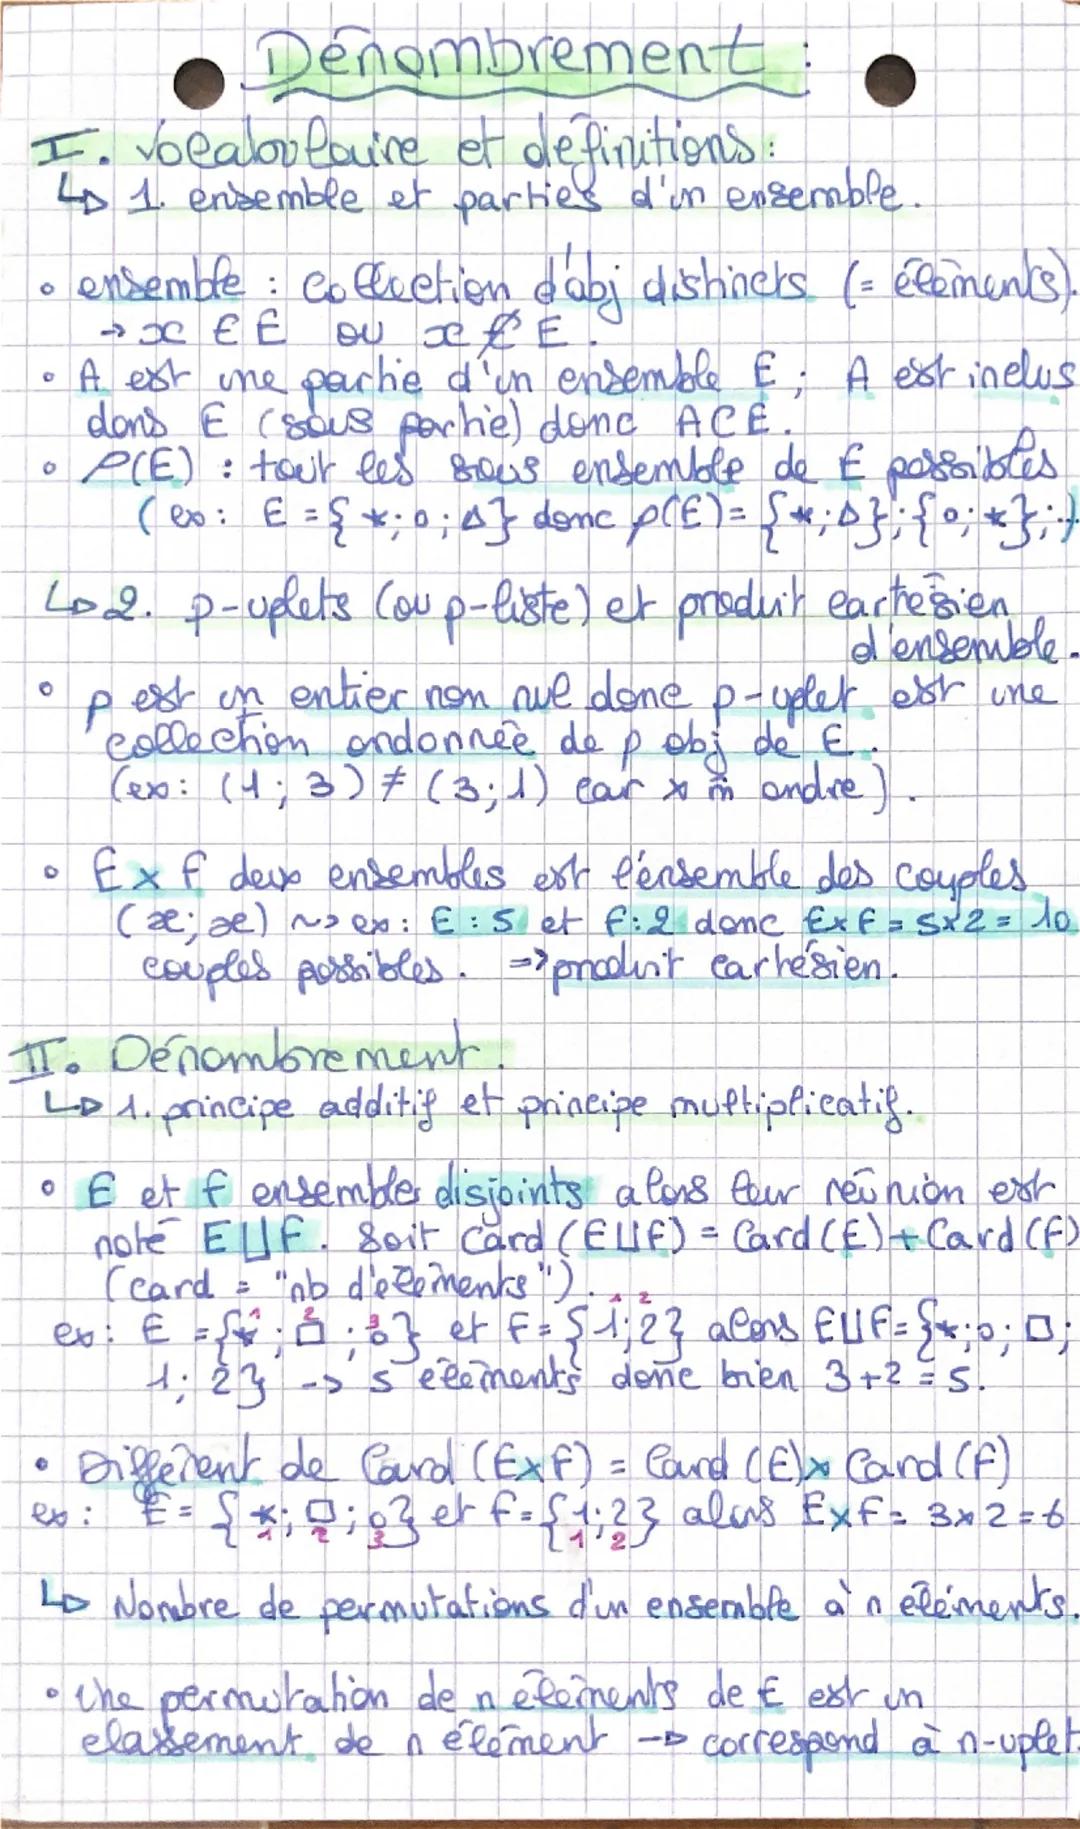 Dénombrement :
I. Vocabulaire et définitions :
↳ 1. ensemble et parties d'un ensemble.
• ensemble : Collection d'obj distincts (= éléments).
→ x ∈ E ou x ∉ E.
• A est une partie d'un ensemble E ; A est inclus
dans E (sous partie) donc A⊂E.
• P(E) : tout les sous ensemble de E possibles
(ex : E = {*; o; Δ} donc P(E) = {*; Δ}; {o; *}; ..)
↳ 2. p-uplets (ou p-liste) et produit cartésien
d'ensemble.
• p est un entier non nul donc p-uplet est une
collection ordonnée de p obj de E.
(ex : (1; 3) ≠ (3; 1) car x m̂ ordre).
• E x F deux ensembles est l'ensemble des couples
(x; x) ~> ex : E : 5 et F : 2 donc ExF = 5x2 = 10
couples possibles. => produit cartésien.
II. Dénombrement.
↳ 1. principe additif et principe multiplicatif.
• E et F ensembles disjoints alors leur réunion est
noté E⊔F. Soit Card(E⊔F) = Card(E) + Card(F)
(card = "nb d'éléments").
1 2 3 1 2
ex : E = {*; □; o} et F = {1; 2} alors E⊔F = {*; o; □;
1; 2} -> 5 éléments donc bien 3+2 = 5.
• Différent de Card(ExF) = Card(E) x Card(F)
ex : E = {*; □; o} et F = {1; 2} alors ExF = 3x2 = 6
1 2 3 1 2
↳ Nombre de permutations d'un ensemble à n éléments.
• Une permutation de n éléments de E est un
classement de n élément -> correspond à n-uplet.